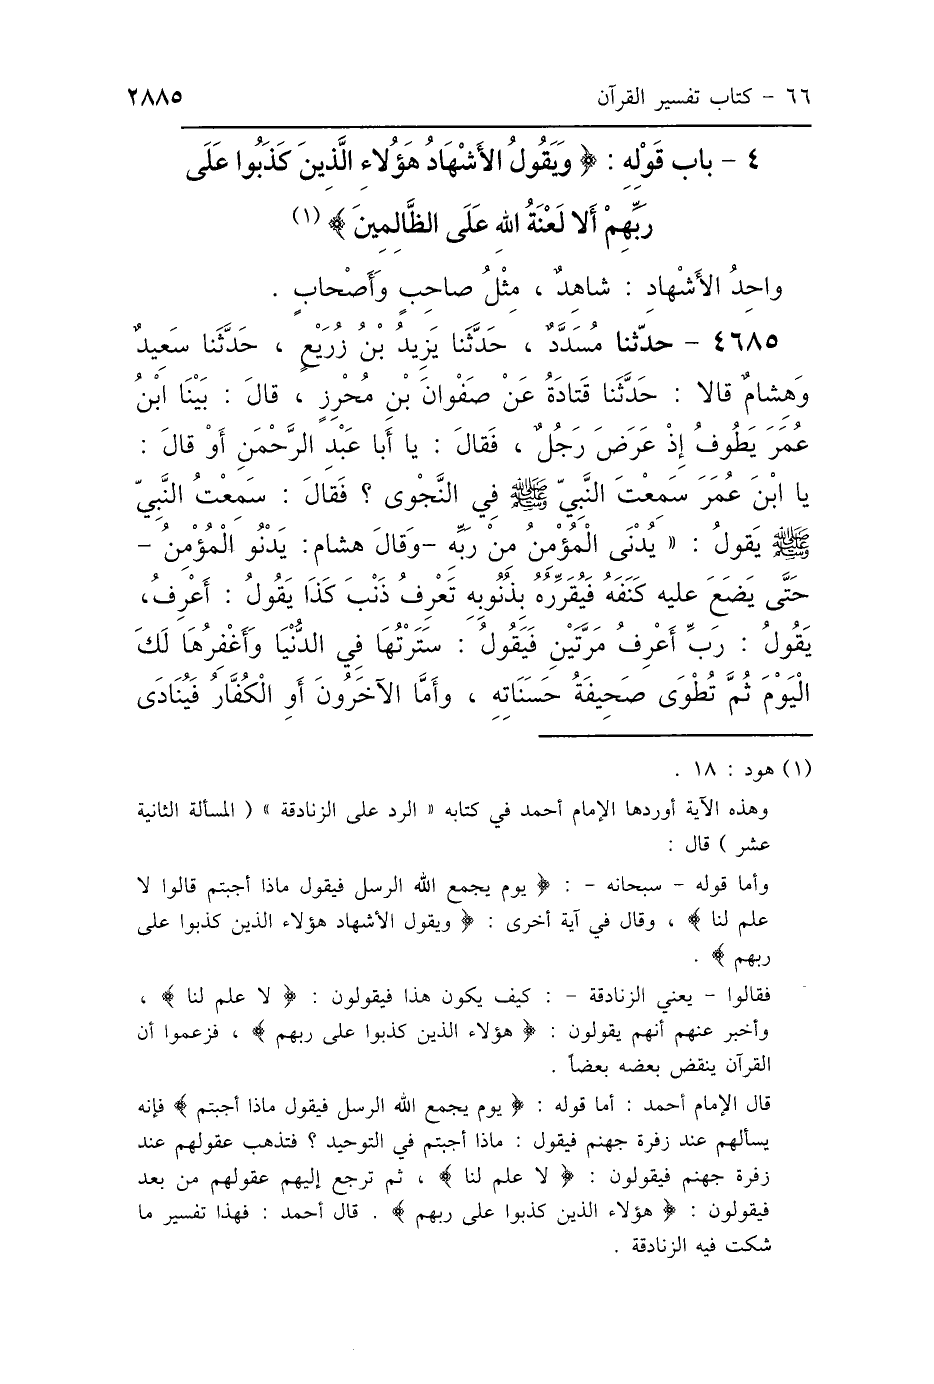 ٦٦ - كتاب تفسير القرآن ٢٨٨٥
٤ - باب قَوْلِهِ : ﴿ وَيَقُولُ الأَشْهَادُ هَؤُلاءِ الَّذِينَ كَذَبُوا عَلَى
رَبِّهِمْ أَلا لَعْنَةُ اللهِ عَلَى الظَّالِمِينَ ﴾ (١)
واحِدُ الأَشْهادِ : شاهِدٌ ، مِثْلُ صاحِبٍ وأَصْحابٍ .
٤٦٨٥ - حدّثنا مُسَدَّدٌ ، حَدَّثَنا يَزِيدُ بْنُ زُرَيْعٍ ، حَدَّثَنا سَعِيدٌ
وَهِشامٌ قالا : حَدَّثَنا قَتادَةُ عَنْ صَفْوانَ بْنِ مُحْرِزٍ ، قالَ : بَيْنا ابْنُ
عُمَرَ يَطُوفُ إِذْ عَرَضَ رَجُلٌ ، فَقالَ : يا أَبا عَبْدِ الرَّحْمَنِ أَوْ قالَ :
يا ابْنَ عُمَرَ سَمِعْتَ النَّبِيّ ﷺ فِي النَّجْوى ؟ فَقالَ : سَمِعْتُ النَّبِيّ
ﷺ يَقُولُ : « يُدْنَى الْمُؤْمِنُ مِنْ رَبِّهِ -وَقالَ هِشام: يَدْنُو الْمُؤْمِنُ -
حَتَّى يَضَعَ عليهِ كَنَفَهُ فَيُقَرِّرُه بِذُنُوبِهِ تَعْرِفُ ذَنْبَ كَذَا يَقُولُ : أَعْرِفُ،
يَقُولُ : رَبِّ أَعْرِفُ مَرَّتَيْنِ فَيَقُولُ : سَتَرْتُهَا فِي الدُّنْيَا وَأَغْفِرُهَا لَكَ
الْيَوْمَ ثُمَّ تُطْوَى صَحِيفَةُ حَسَنَاتِهِ ، وأَمَّا الآخَرُونَ أَوِ الْكُفَّارُ فَيُنَادَى
(١) هود : ١٨ .
وهذه الآية أوردها الإمام أحمد في كتابه « الرد على الزنادقة » ( المسألة الثانية
عشر ) قال :
وأما قوله - سبحانه - : ﴿ يوم يجمع الله الرسل فيقول ماذا أجبتم قالوا لا
علم لنا ﴾ ، وقال في آية أخرى : ﴿ ويقول الأشهاد هؤلاء الذين كذبوا على
ربهم ﴾ .
فقالوا - يعني الزنادقة - : كيف يكون هذا فيقولون : ﴿ لا علم لنا ﴾ ،
وأخبر عنهم أنهم يقولون : ﴿ هؤلاء الذين كذبوا على ربهم ﴾ ، فزعموا أن
القرآن ينقض بعضه بعضاً .
قال الإمام أحمد : أما قوله : ﴿ يوم يجمع الله الرسل فيقول ماذا أجبتم ﴾ فإنه
يسألهم عند زفرة جهنم فيقول : ماذا أجبتم في التوحيد ؟ فتذهب عقولهم عند
زفرة جهنم فيقولون : ﴿ لا علم لنا ﴾ ، ثم ترجع إليهم عقولهم من بعد
فيقولون : ﴿ هؤلاء الذين كذبوا على ربهم ﴾ . قال أحمد : فهذا تفسير ما
شكت فيه الزنادقة .